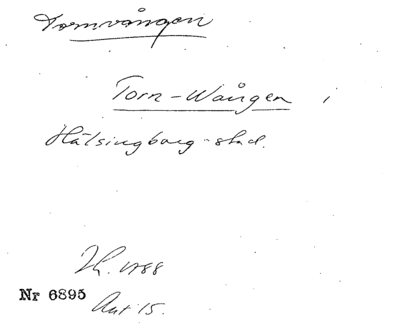 Tornvången
Torn-Wången i
Hälsingborg-stad.
1788
Nr 6895
Art 15.